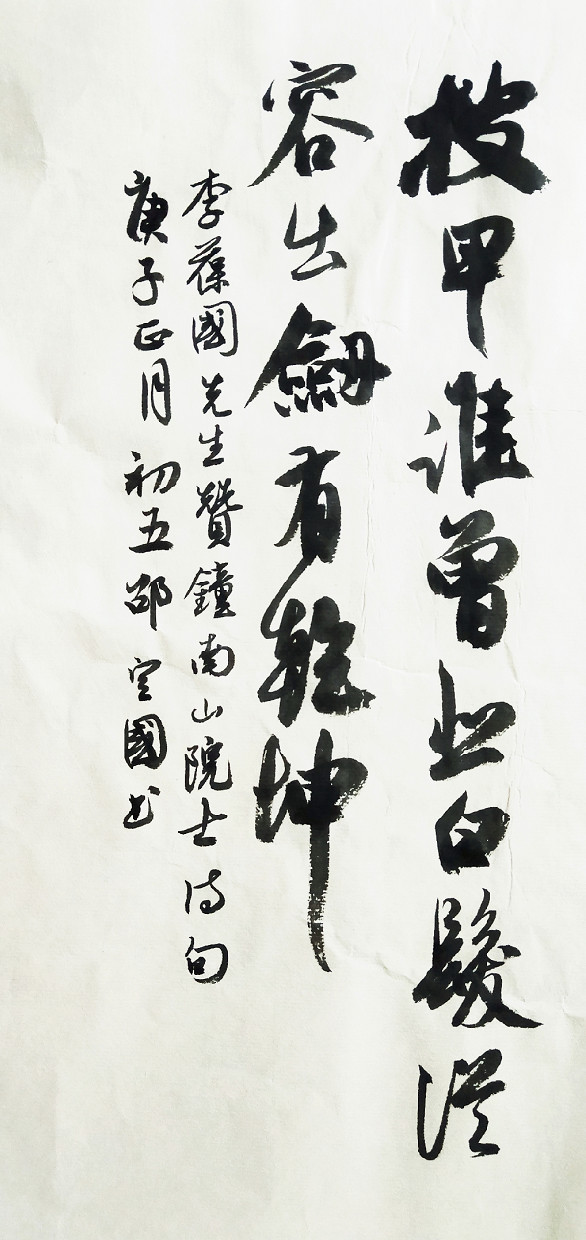 披甲谁曾止白髮從
容出劔有乾坤
李葆國先生贊鐘南山院士诗句
庚子正月初五邵定國书